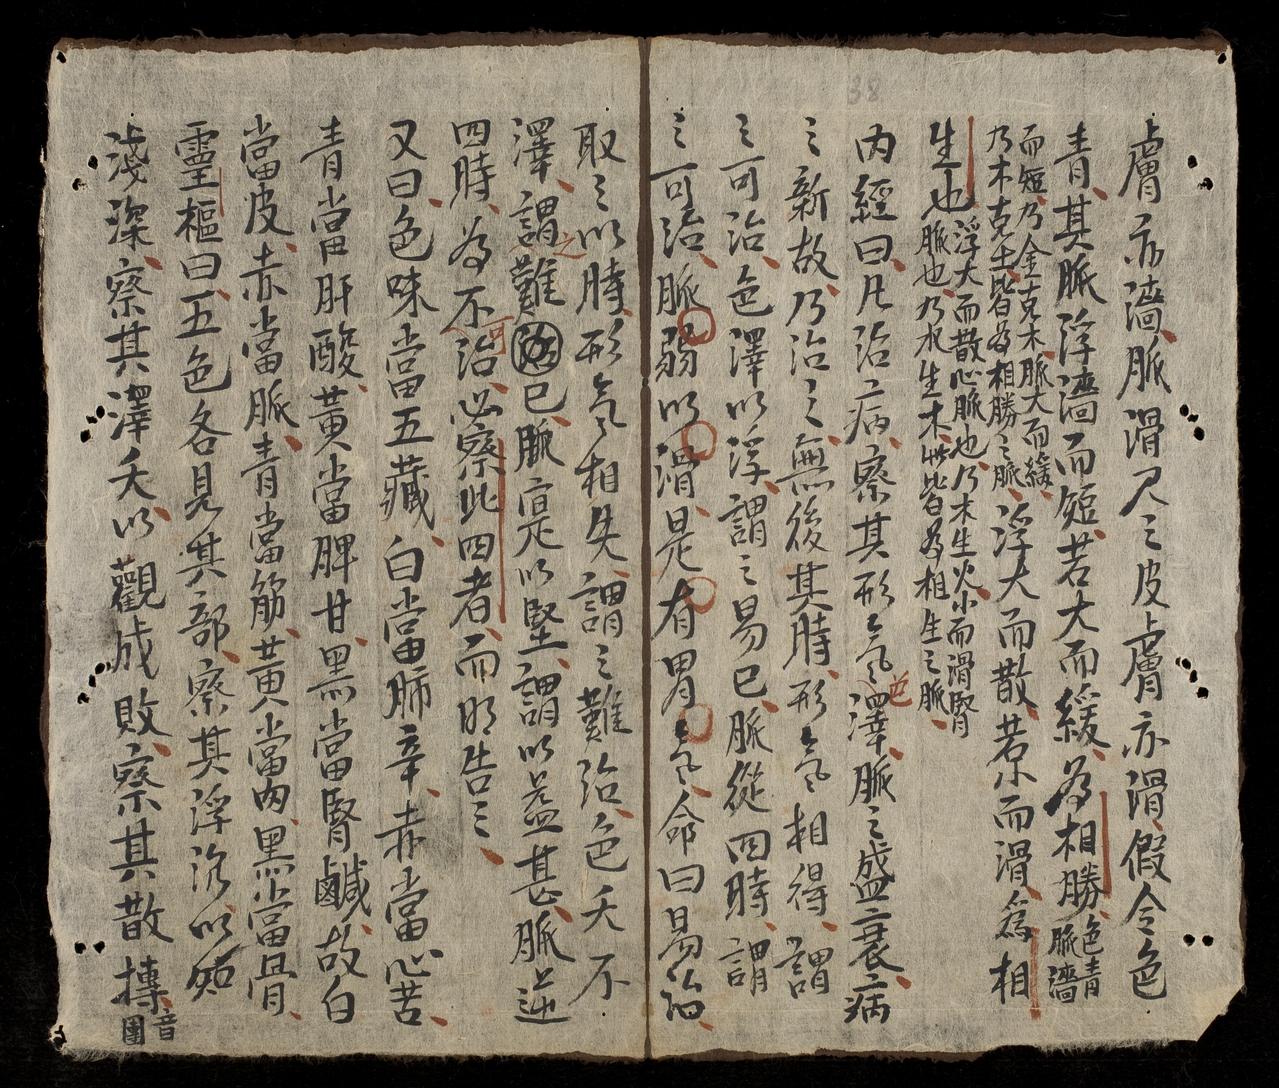 38
膚亦濇、脈滑尺之皮膚亦滑、假令色
青、其脈浮濇而短、若大而緩、為相勝、色青脈濇
而短、乃金克木、脈大而緩、乃木克土、皆為相勝之脈、浮大而散、若小而滑、為相
生也、浮大而散心脈也、乃木生火、小而滑腎脈也、乃水生木、此皆為相生之脈、
內經曰、凡治病、察其形氣澤、脈之盛衰、病
色
之新故、乃治之、無後其時、形氣相得、謂
之可治、色澤以浮、謂之易已、脈從四時、謂
之可治、脈弱以滑、是有胃氣、命曰易治、
取之以時、形氣相失、謂之難治、色夭不
澤、謂難已、脈實以堅、謂以益甚、脈逆
之
四時、為不治、必察此四者、而明告之、
可
又曰、色味當五藏、白當肺辛、赤當心苦、
青當肝酸、黃當脾甘、黑當腎鹹、故白
當皮、赤當脈、青當筋、黃當肉、黑當骨、
靈樞曰、五色各見其部、察其浮沉、以知
淺深、察其澤夭、以觀成敗、察其散摶、音團